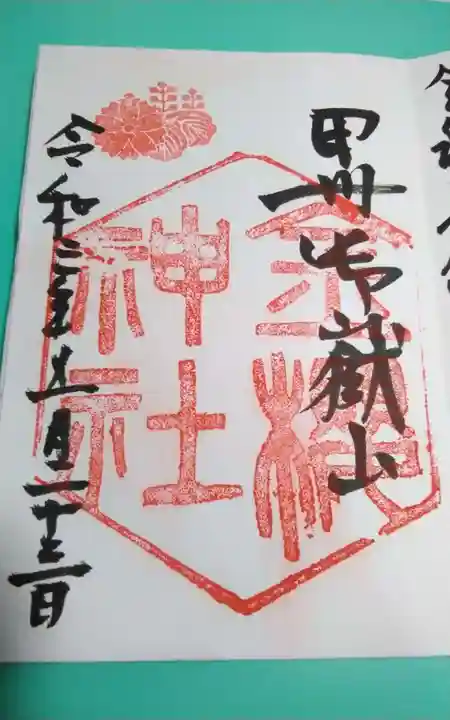 甲州御嶽山
金櫻神社
令和二年五月二十三日